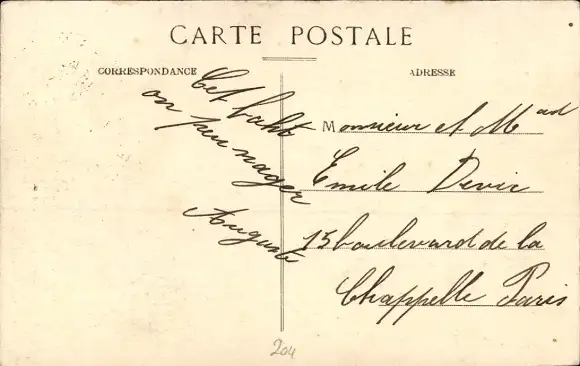 CARTE POSTALE
CORRESPONDANCE
ADRESSE
on peu nager
Auguste
Monsieur et Mad
Emile Devic
15 boulevard de la
Chappelle Paris
204